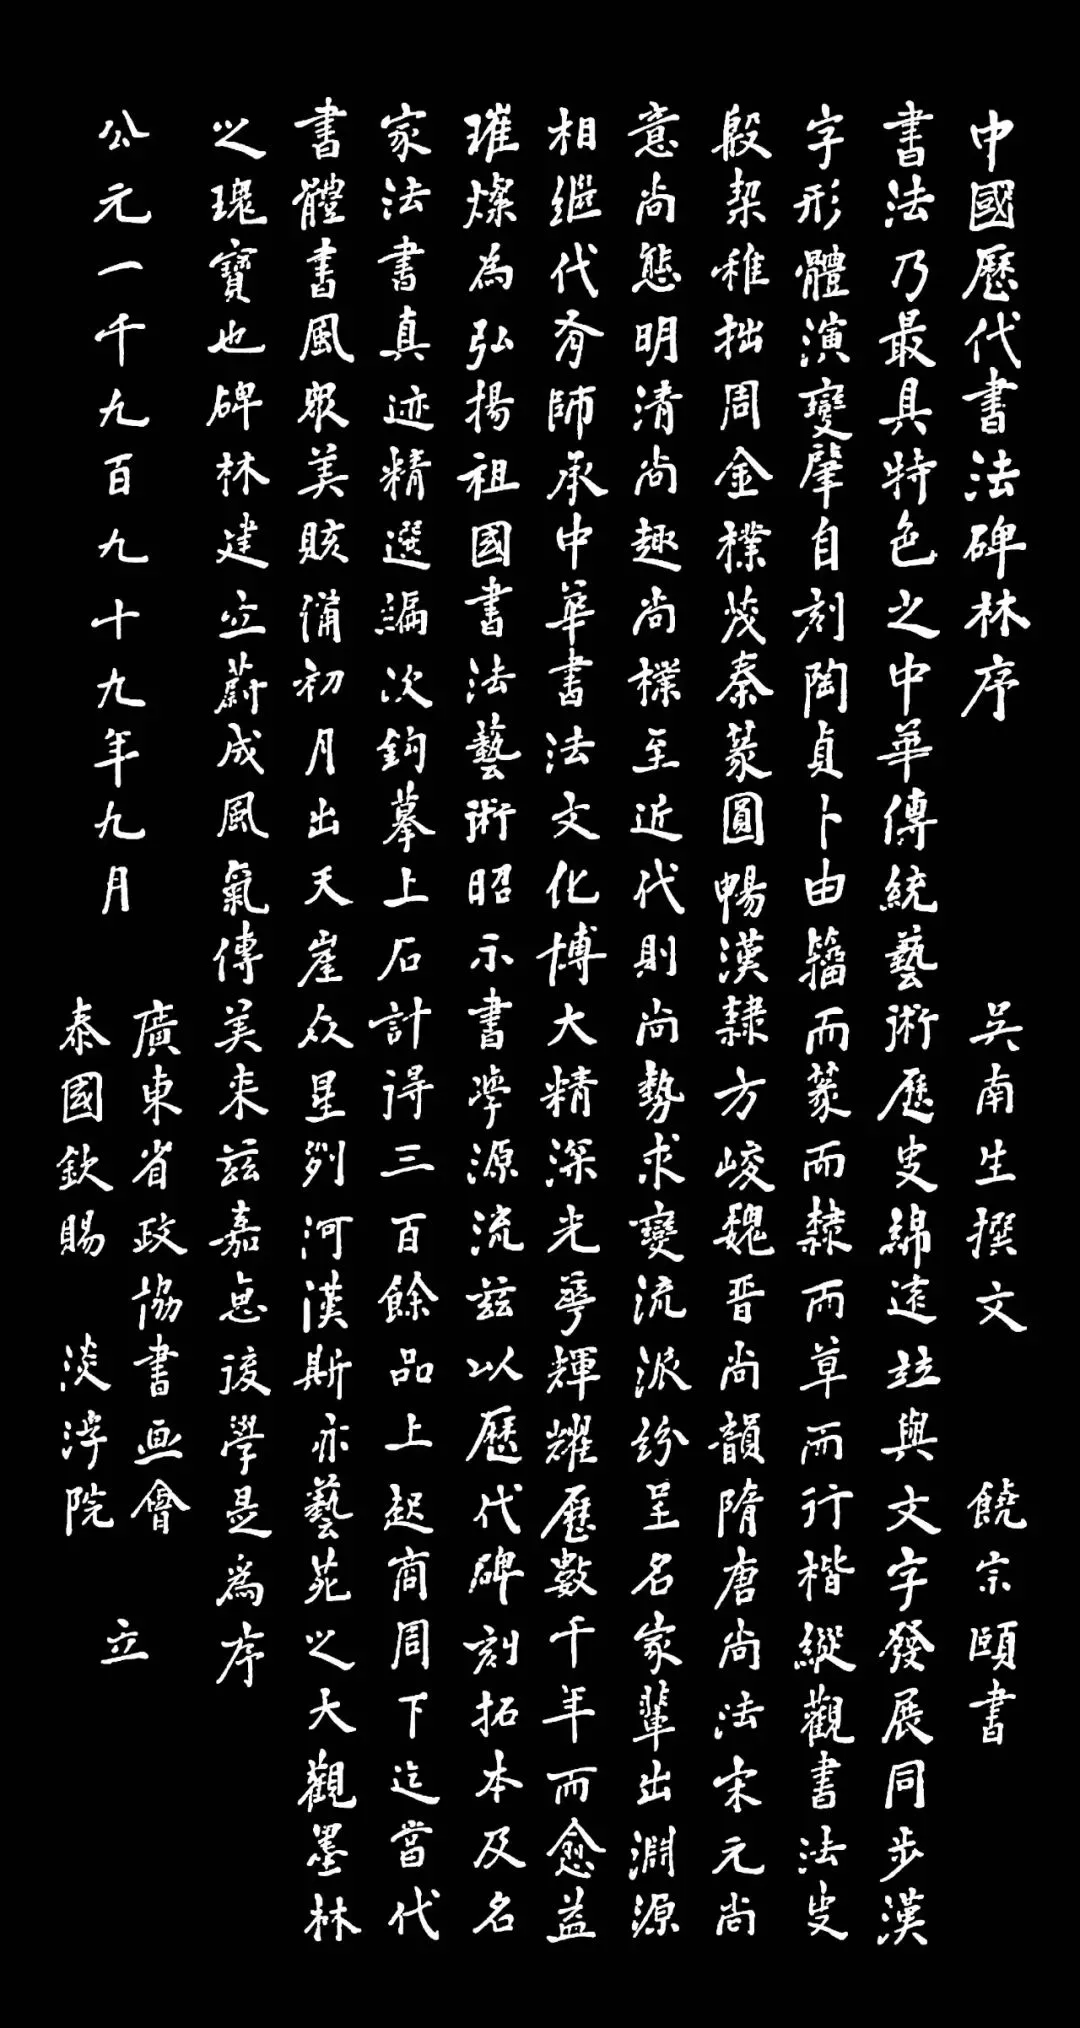 中國歷代書法碑林序 吳南生撰文 饒宗頤書
書法乃最具特色之中華傳統藝術歷史綿遠竝與文字發展同步漢
字形體演變肇自刻陶貞卜由籀而篆而隸而草而行楷縱觀書法史
殷栔稚拙周金樸茂秦篆圓暢漢隸方峻魏晋尚韻隋唐尚法宋元尚
意尚態明清尚趣尚樸至近代則尚勢求變流派紛呈名家輩出淵源
相繼代有師承中華書法文化博大精深光華輝耀歷數千年而愈益
璀燦為弘揚祖國書法藝術昭示書學源流兹以歷代碑刻拓本及名
家法書真迹精選編次鈎摹上石計得三百餘品上起商周下迄當代
書體書風眾美賅備初月出天崖众星列河漢斯亦藝苑之大觀墨林
之瑰寶也碑林建立蔚成風氣傳美来兹嘉惠後學是為序
公元一千九百九十九年九月
廣東省政協書画會
泰國欽賜 淡浮院 立